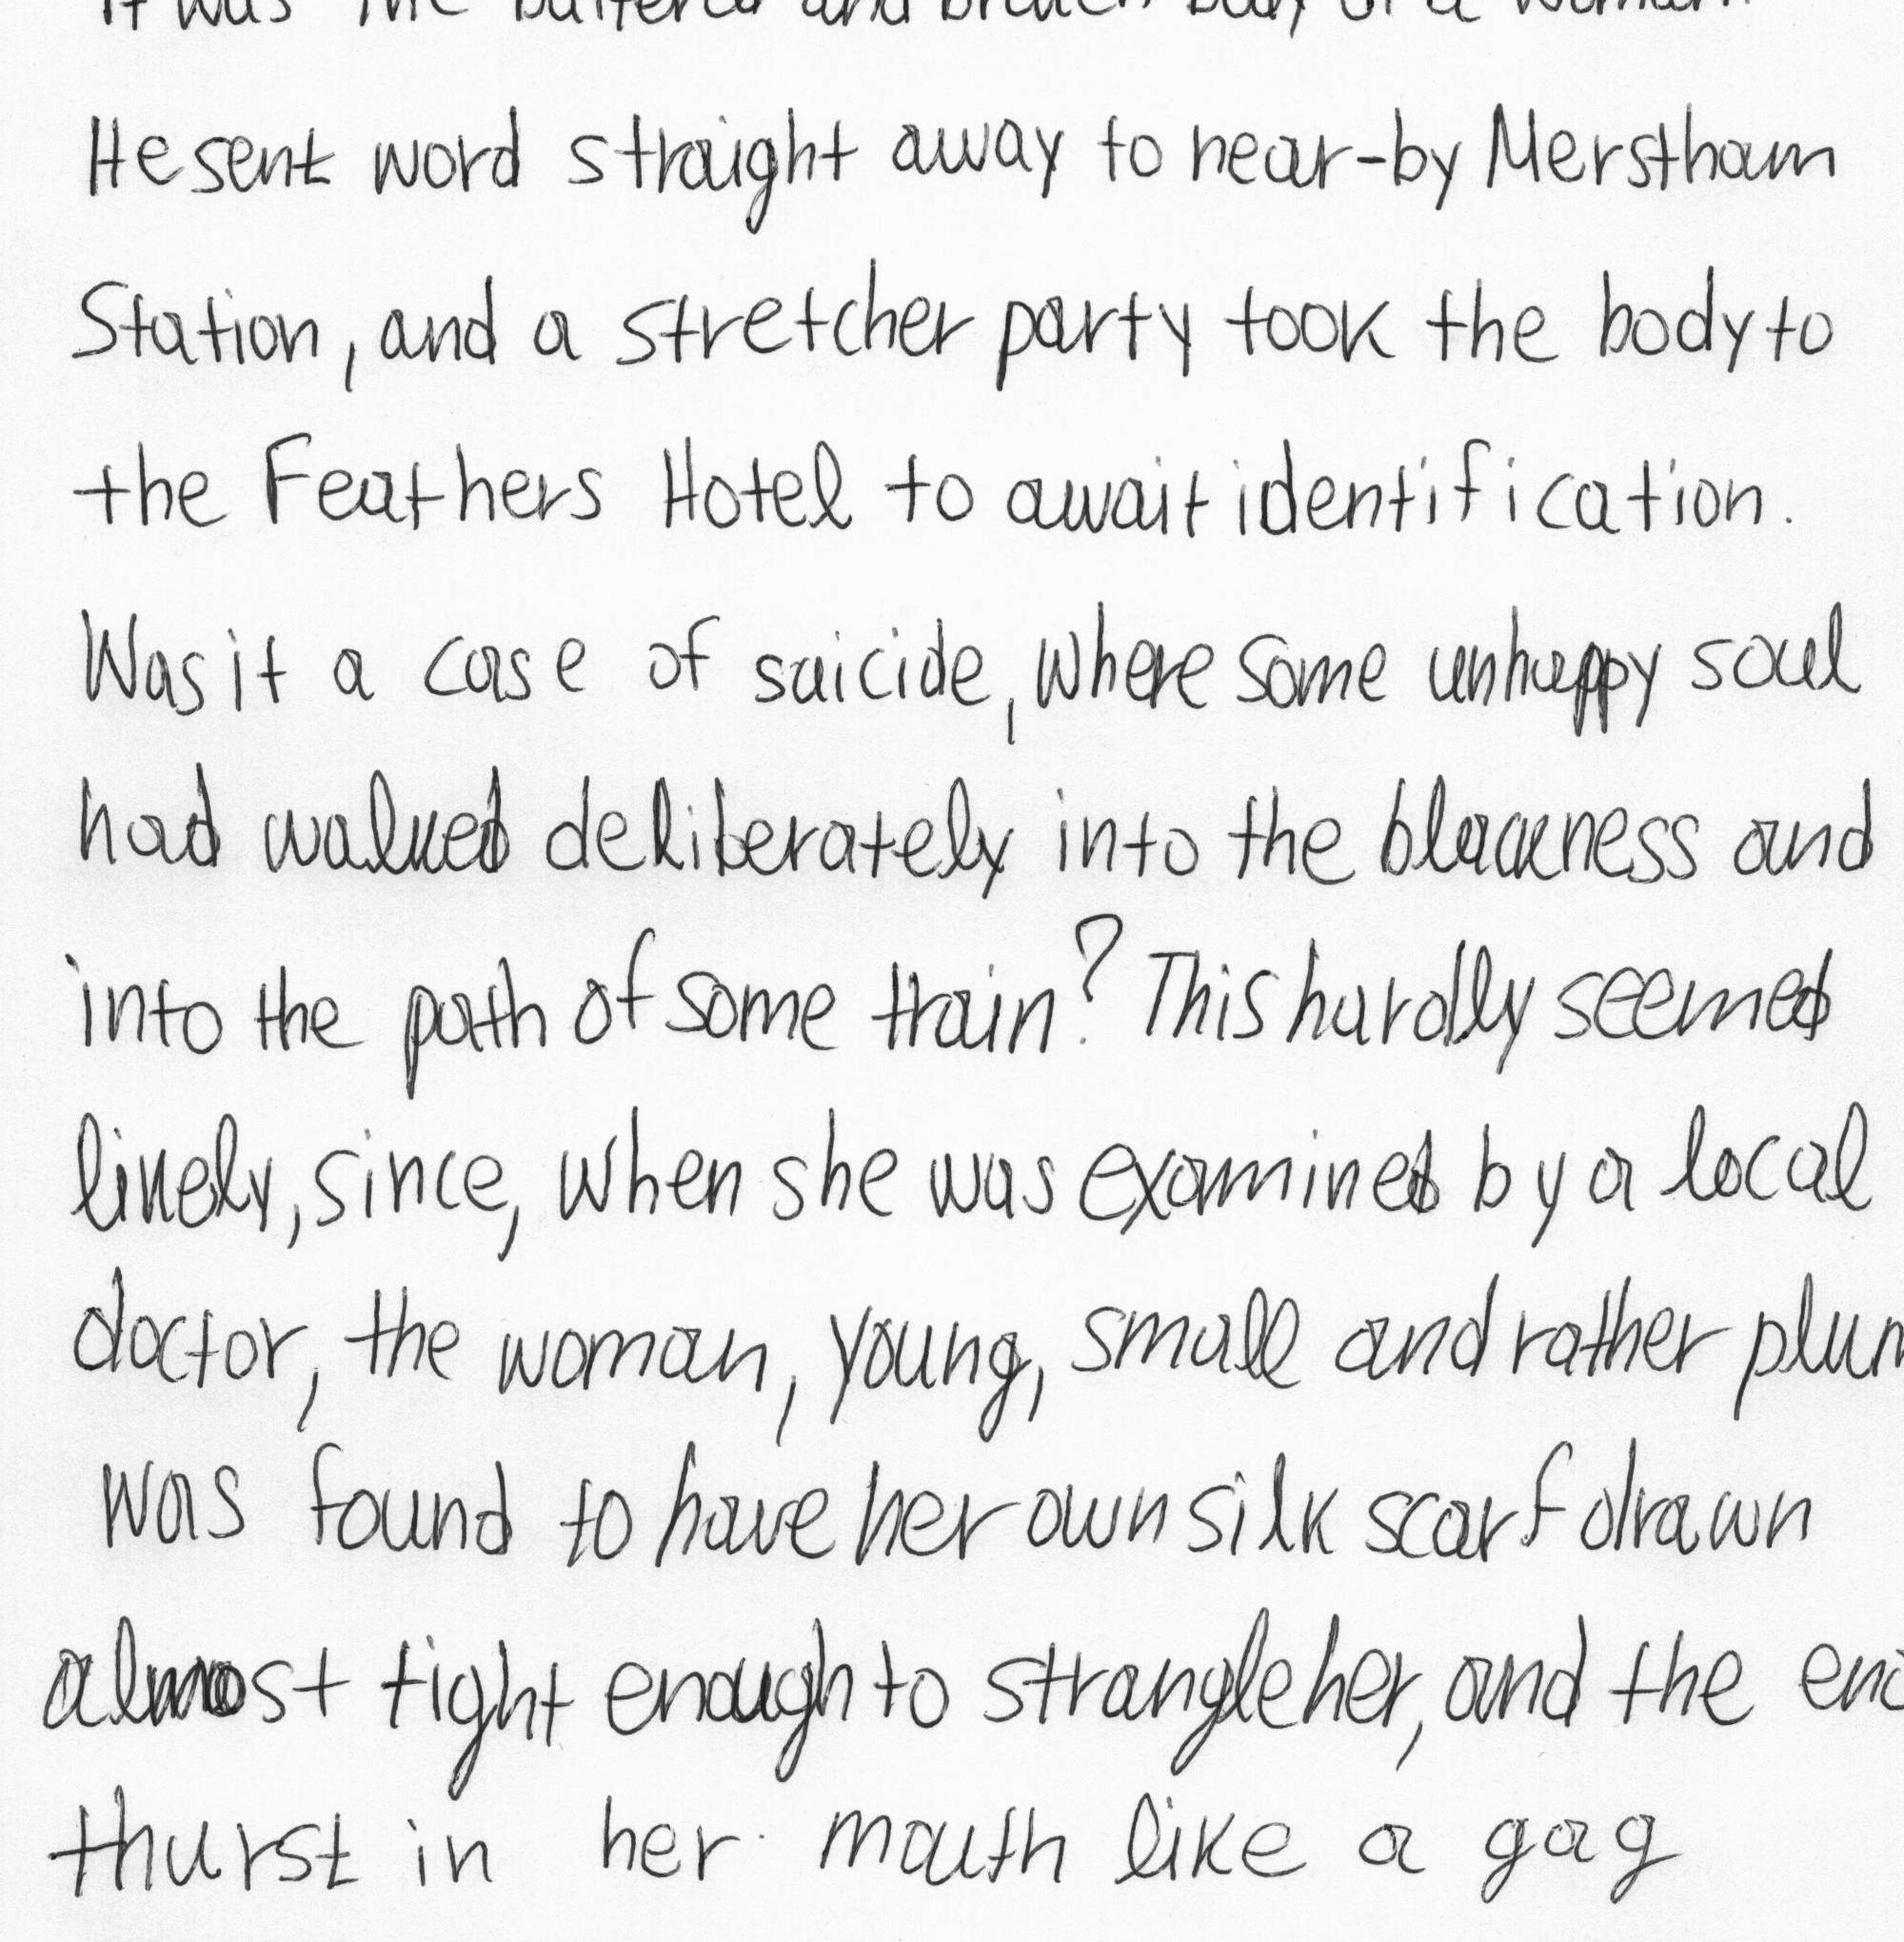 It was the battered and broken body of a woman.
He sent word straight away to near-by Merstham
Station, and a stretcher party took the body to
the Feathers Hotel to await identification.
Was it a case of suicide, where some unhappy soul
had walked deliberately into the blackness and
into the path of some train? This hardly seemed
likely, since, when she was examined by a local
doctor, the woman, young, small and rather plum
was found to have her own silk scarf drawn
almost tight enough to strangle her, and the end
thurst in her mouth like a gag